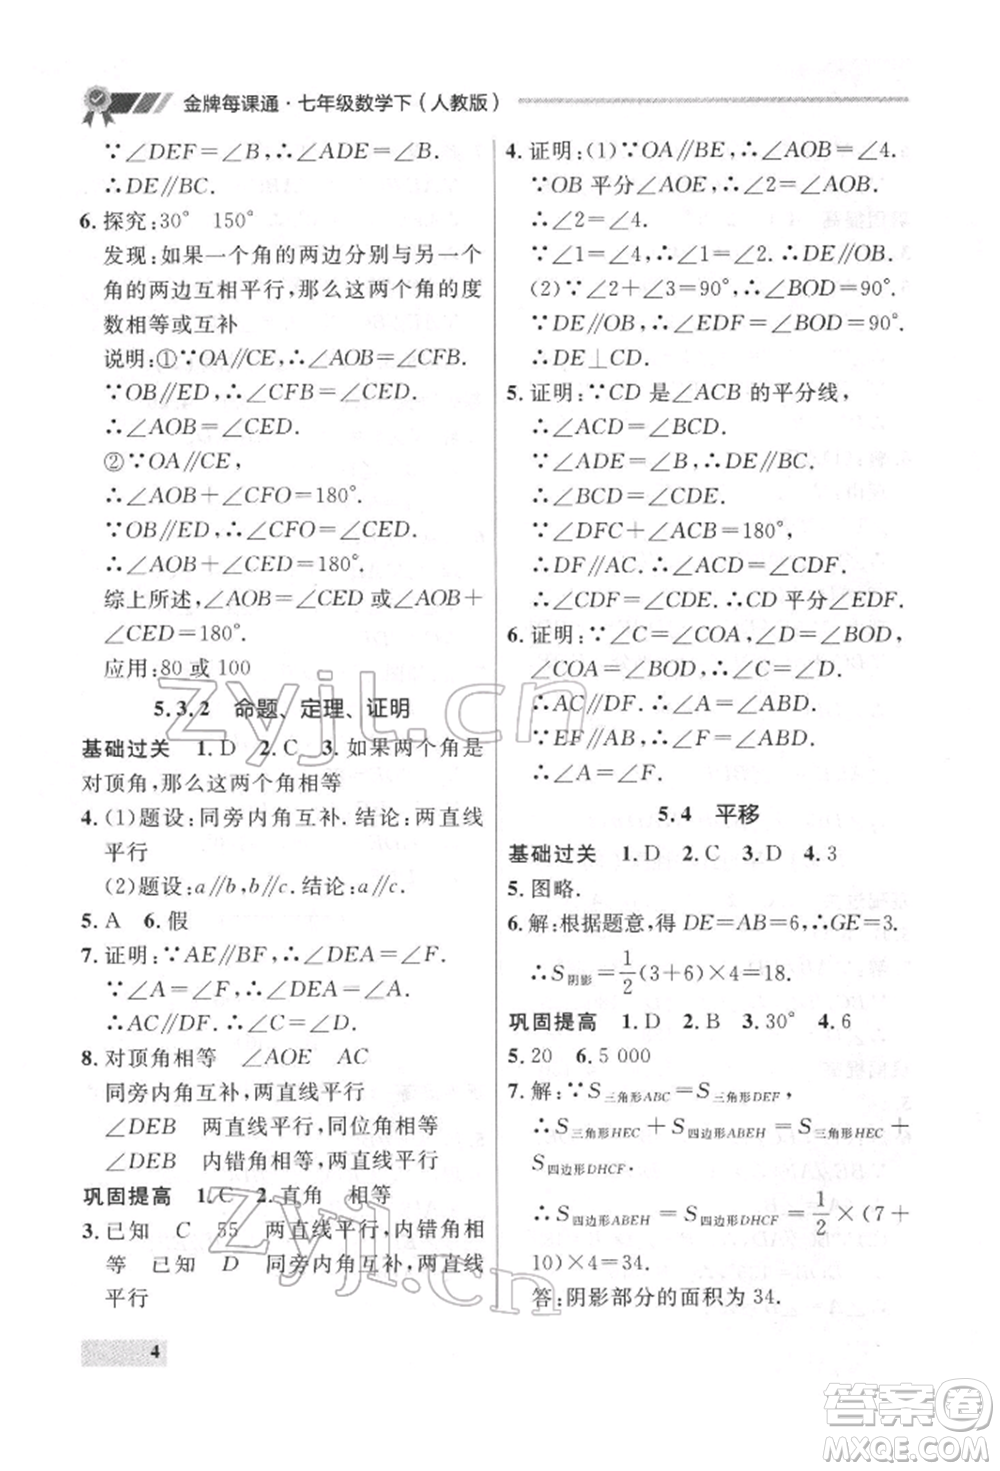 金牌每课通·七年级数学下（人教版）
∵∠DEF＝∠B，∴∠ADE＝∠B.
∴DE∥BC.
6. 探究：30° 150°
发现：如果一个角的两边分别与另一个
角的两边互相平行，那么这两个角的度
数相等或互补
说明：①∵OA∥CE，∴∠AOB＝∠CFB.
∵OB∥ED，∴∠CFB＝∠CED.
∴∠AOB＝∠CED.
②∵OA∥CE，
∴∠AOB＋∠CFO＝180°.
∵OB∥ED，∴∠CFO＝∠CED.
∴∠AOB＋∠CED＝180°.
综上所述，∠AOB＝∠CED 或∠AOB＋
∠CED＝180°.
应用：80 或 100
5.3.2 命题、定理、证明
基础过关 1. D 2. C 3. 如果两个角是
对顶角，那么这两个角相等
4. (1)题设：同旁内角互补. 结论：两直线
平行
(2)题设：a∥b，b∥c. 结论：a∥c.
5. A 6. 假
7. 证明：∵AE∥BF，∴∠DEA＝∠F.
∵∠A＝∠F，∴∠DEA＝∠A.
∴AC∥DF. ∴∠C＝∠D.
8. 对顶角相等 ∠AOE AC
同旁内角互补，两直线平行
∠DEB 两直线平行，同位角相等
∠DEB 内错角相等，两直线平行
巩固提高 1. C 2. 直角 相等
3. 已知 C 55 两直线平行，内错角相
等 已知 D 同旁内角互补，两直线
平行
4
4. 证明：(1)∵OA∥BE，∴∠AOB＝∠4.
∵OB 平分∠AOE，∴∠2＝∠AOB.
∴∠2＝∠4.
∵∠1＝∠4，∴∠1＝∠2. ∴DE∥OB.
(2)∵∠2＋∠3＝90°，∴∠BOD＝90°.
∵DE∥OB，∴∠EDF＝∠BOD＝90°.
∴DE⊥CD.
5. 证明：∵CD 是∠ACB 的平分线，
∴∠ACD＝∠BCD.
∵∠ADE＝∠B，∴DE∥BC.
∴∠BCD＝∠CDE.
∵∠DFC＋∠ACB＝180°，
∴DF∥AC. ∴∠ACD＝∠CDF.
∴∠CDF＝∠CDE. ∴CD 平分∠EDF.
6. 证明：∵∠C＝∠COA，∠D＝∠BOD，
∠COA＝∠BOD，∴∠C＝∠D.
∴AC∥DF. ∴∠A＝∠ABD.
∵EF∥AB，∴∠F＝∠ABD.
∴∠A＝∠F.
5.4 平移
基础过关 1. D 2. C 3. D 4. 3
5. 图略.
6. 解：根据题意，得 DE＝AB＝6，∴GE＝3.
∴S阴影＝1/2(3＋6)×4＝18.
巩固提高 1. D 2. B 3. 30° 4. 6
5. 20 6. 5 000
7. 解：∵S三角形ABC＝S三角形DEF，
∴S三角形HEC＋S四边形ABEH＝S三角形HEC＋
S四边形DHCF.
∴S四边形ABEH＝S四边形DHCF＝1/2×(7＋
10)×4＝34.
答：阴影部分的面积为 34.
zyjl.cn
zyjl.cn
答案圈
MXQE.COM